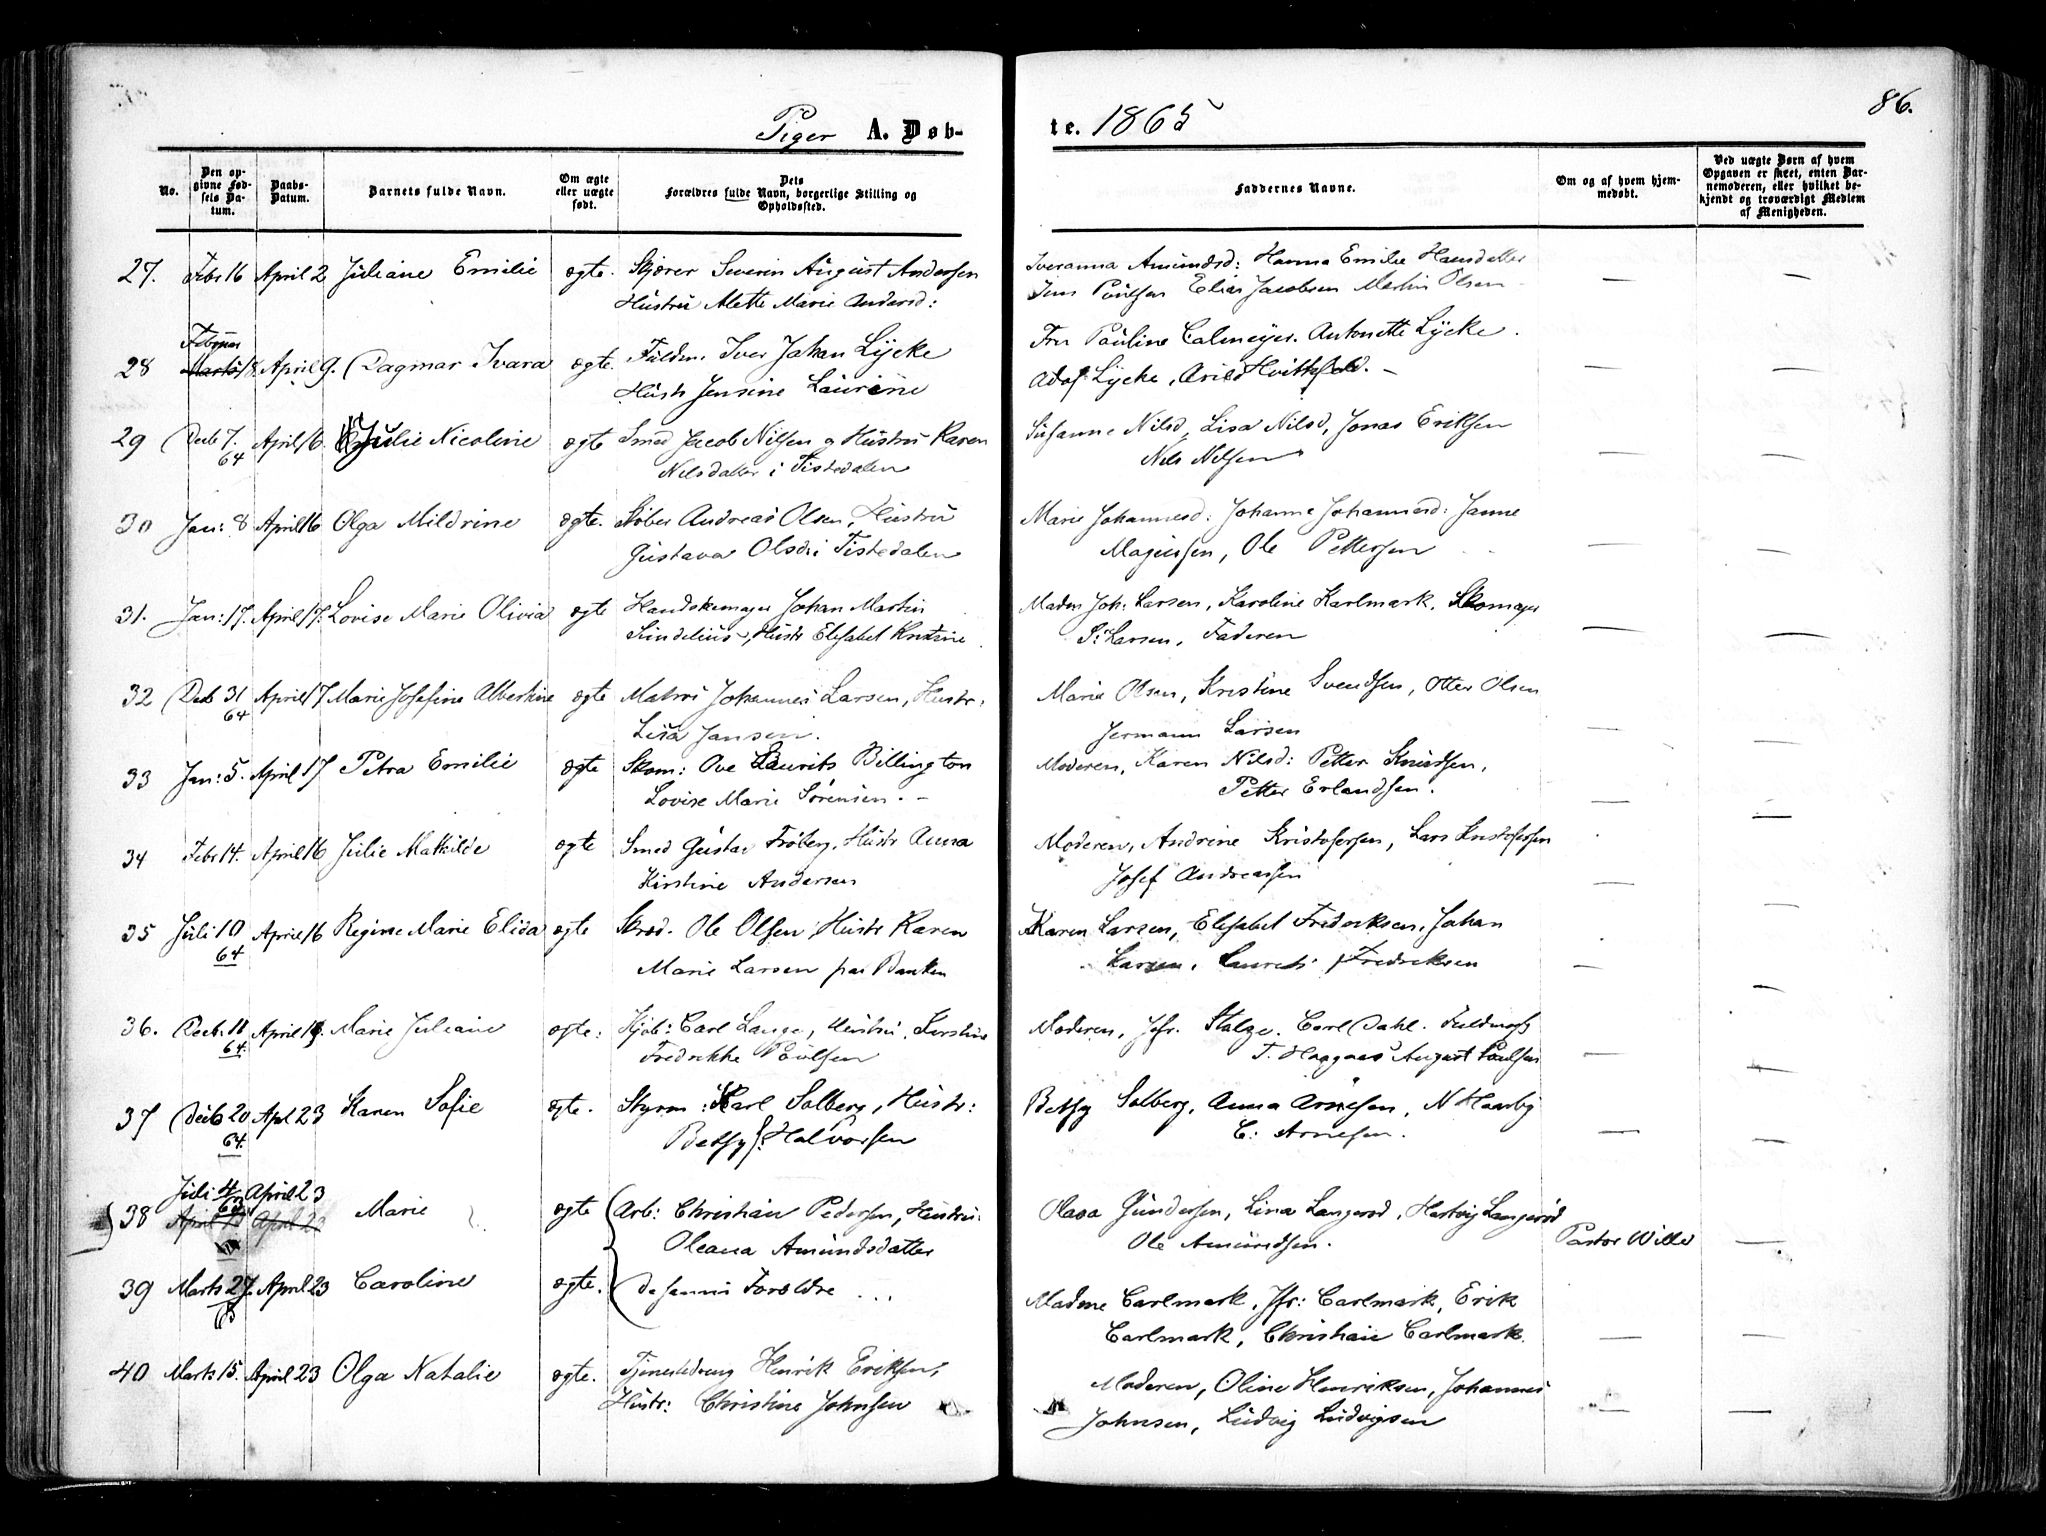 Piger A. Døb-
te. 1865
86.
No.
Den op-
givne Fød-
sels Da-
tum.
Daabs-
Datum.
Barnets fulde Navn.
Om ægte
eller uægte
født.
Dets
Forældres fulde Navn, borgerlige Stilling og
Opholdssted.
Faddernes Navne.
Om og af hvem hjem-
medøbt.
Ved uægte Børn af hvem
Opgaven er skeet, enten Bar-
nemoderen, eller hvilket be-
kjendt og troværdigt Medlem
af Menigheden.
27. Febr 16 April 2 Juliane Emilie ægte. Severin August Andersen
Hustru Alette Marie Andersd:
Iveranna Amundsd: Hanna Emilie Hansdatter
Jens Poulsen Elias Jacobsen Martin Olsen
28 Marts 18. April 9. Dagmar Ivara ægte. Fuldm. Iver Johan Lycke
Hustr Jensine Laurine
Fru Pauline Calmeyer. Antonette Lycke.
Adolf Lycke, Arild Hvitfeld. –
29 Decb 7. 64 April 16. Julie Nicoline ægte Smed Jacob Nilsen og Hustru Karen
Nilsdatter i Tistedalen
Susanne Nilsd, Lisa Nilsd, Jonas Eriksen
Nils Nilsen
30 Jan: 8 April 16 Olga Mildrine ægte. Andreas Olsen, Hustru
Gustava Olsd: i Tistedalen
Marie Johannesd: Johanne Johannesd: Janne
Magnussen, Ole Pettersen
31. Jan: 17. April 17: Lovise Marie Olivia ægte Handskemager Johan Martin
Sundelius, Hustr Elisabet Kristine
Madm Joh: Larsen, Karoline Karlmark, Skomager
S: Larsen, Faderen
32 Decb 31 64 April 17 Marie Josefine Albertine ægte Matros Johannes Larsen, Hustr:
Lisa Jansen.
Marie Olsen, Kristine Svendsen, Otter Olsen
Jermann Larsen
33 Jan: 5. April 17 Petra Emilie ægte Skom: Ove Laurits Billington
Lovise Marie Sørensen. –
Moderen, Karen Nilsd: Petter Knudsen,
Petter Erlandsen.
34 Febr 14. April 16 Julie Mathilde ægte Smed Gustav Frøberg, Hustr Anna
Kirstine Andersen
Moderen, Andrine Kristofersen, Lars Kristofersen
Josef Andreassen
35 Juli 10 64 April 16 Regine Marie Elida ægte Skræd. Ole Olsen Hustr Karen
Marie Larsen paa Banken
Karen Larsen, Elisabet Fredriksen, Johan
Larsen, Laurets Fredriksen
36. Decb. 18 64. April Marie Juliane ægte: Kjøb: Carl Lange, Hustru Kirstine
Fredrikke Poulsen
Moderen, Jfr. Stalze. Carl Dahl. Fuldmægt
T. Haagaas August Poulsen
37 Decb 20 64. Apl 23 Karen Sofie ægte. Styrm: Karl Solberg, Hustr:
Betsy J: Halvorsen
Betsy Solberg, Anna Arnesen, N Haarby
C: Arnesen.
38 Juli 4 63 April 23 Marie ægte Arb: Christian Pedersen, Hustru:
April 23
Oleana Amundsdatter
Olava Gundersen, Lina Langerød, Hartvig Langerød
Ole Amundsen.
Pastor Wille
39 Marts 27. 65 April 23 Caroline ægte. de samme Forældre ...
Madme Carlmark, Jfr: Carlmark, Erik
Carlmark, Christian Carlmark.
40 Marts 15. April 23 Olga Natalie ægte. Tjenestedreng Henrik Eriksen,
Hustr: Christine Johnsen
Moderen, Oline Henriksen, Johannes
Johnsen, Ludvig Ludvigsen